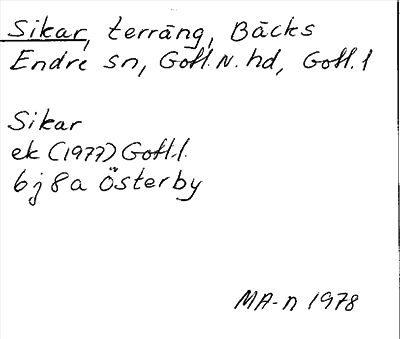 Sikar, terräng, Bäcks
Endre sn, Gotl. N. hd, Gotl. l
Sikar
ek (1977) Gotl. l.
6j 8a Österby
MA-n 1978